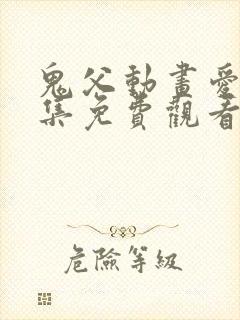 鬼父動畫愛
集免費觀看
危險等級